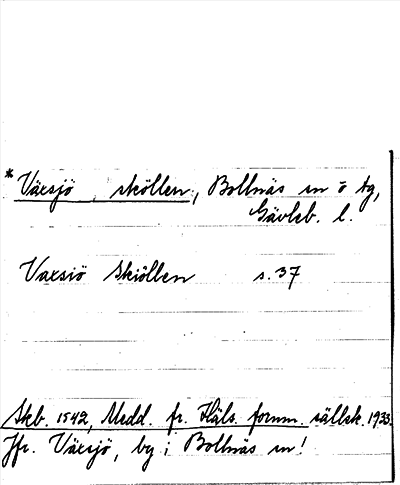 *Växsjö sköllen, Bollnäs sn o tg,
Gävleb. l.
Vaxsiö Skiöllen s. 37
Skb. 1542, Medd. fr. Häls. fornm. sällsk. 1933.
Jfr. Växsjö, by i Bollnäs sn!